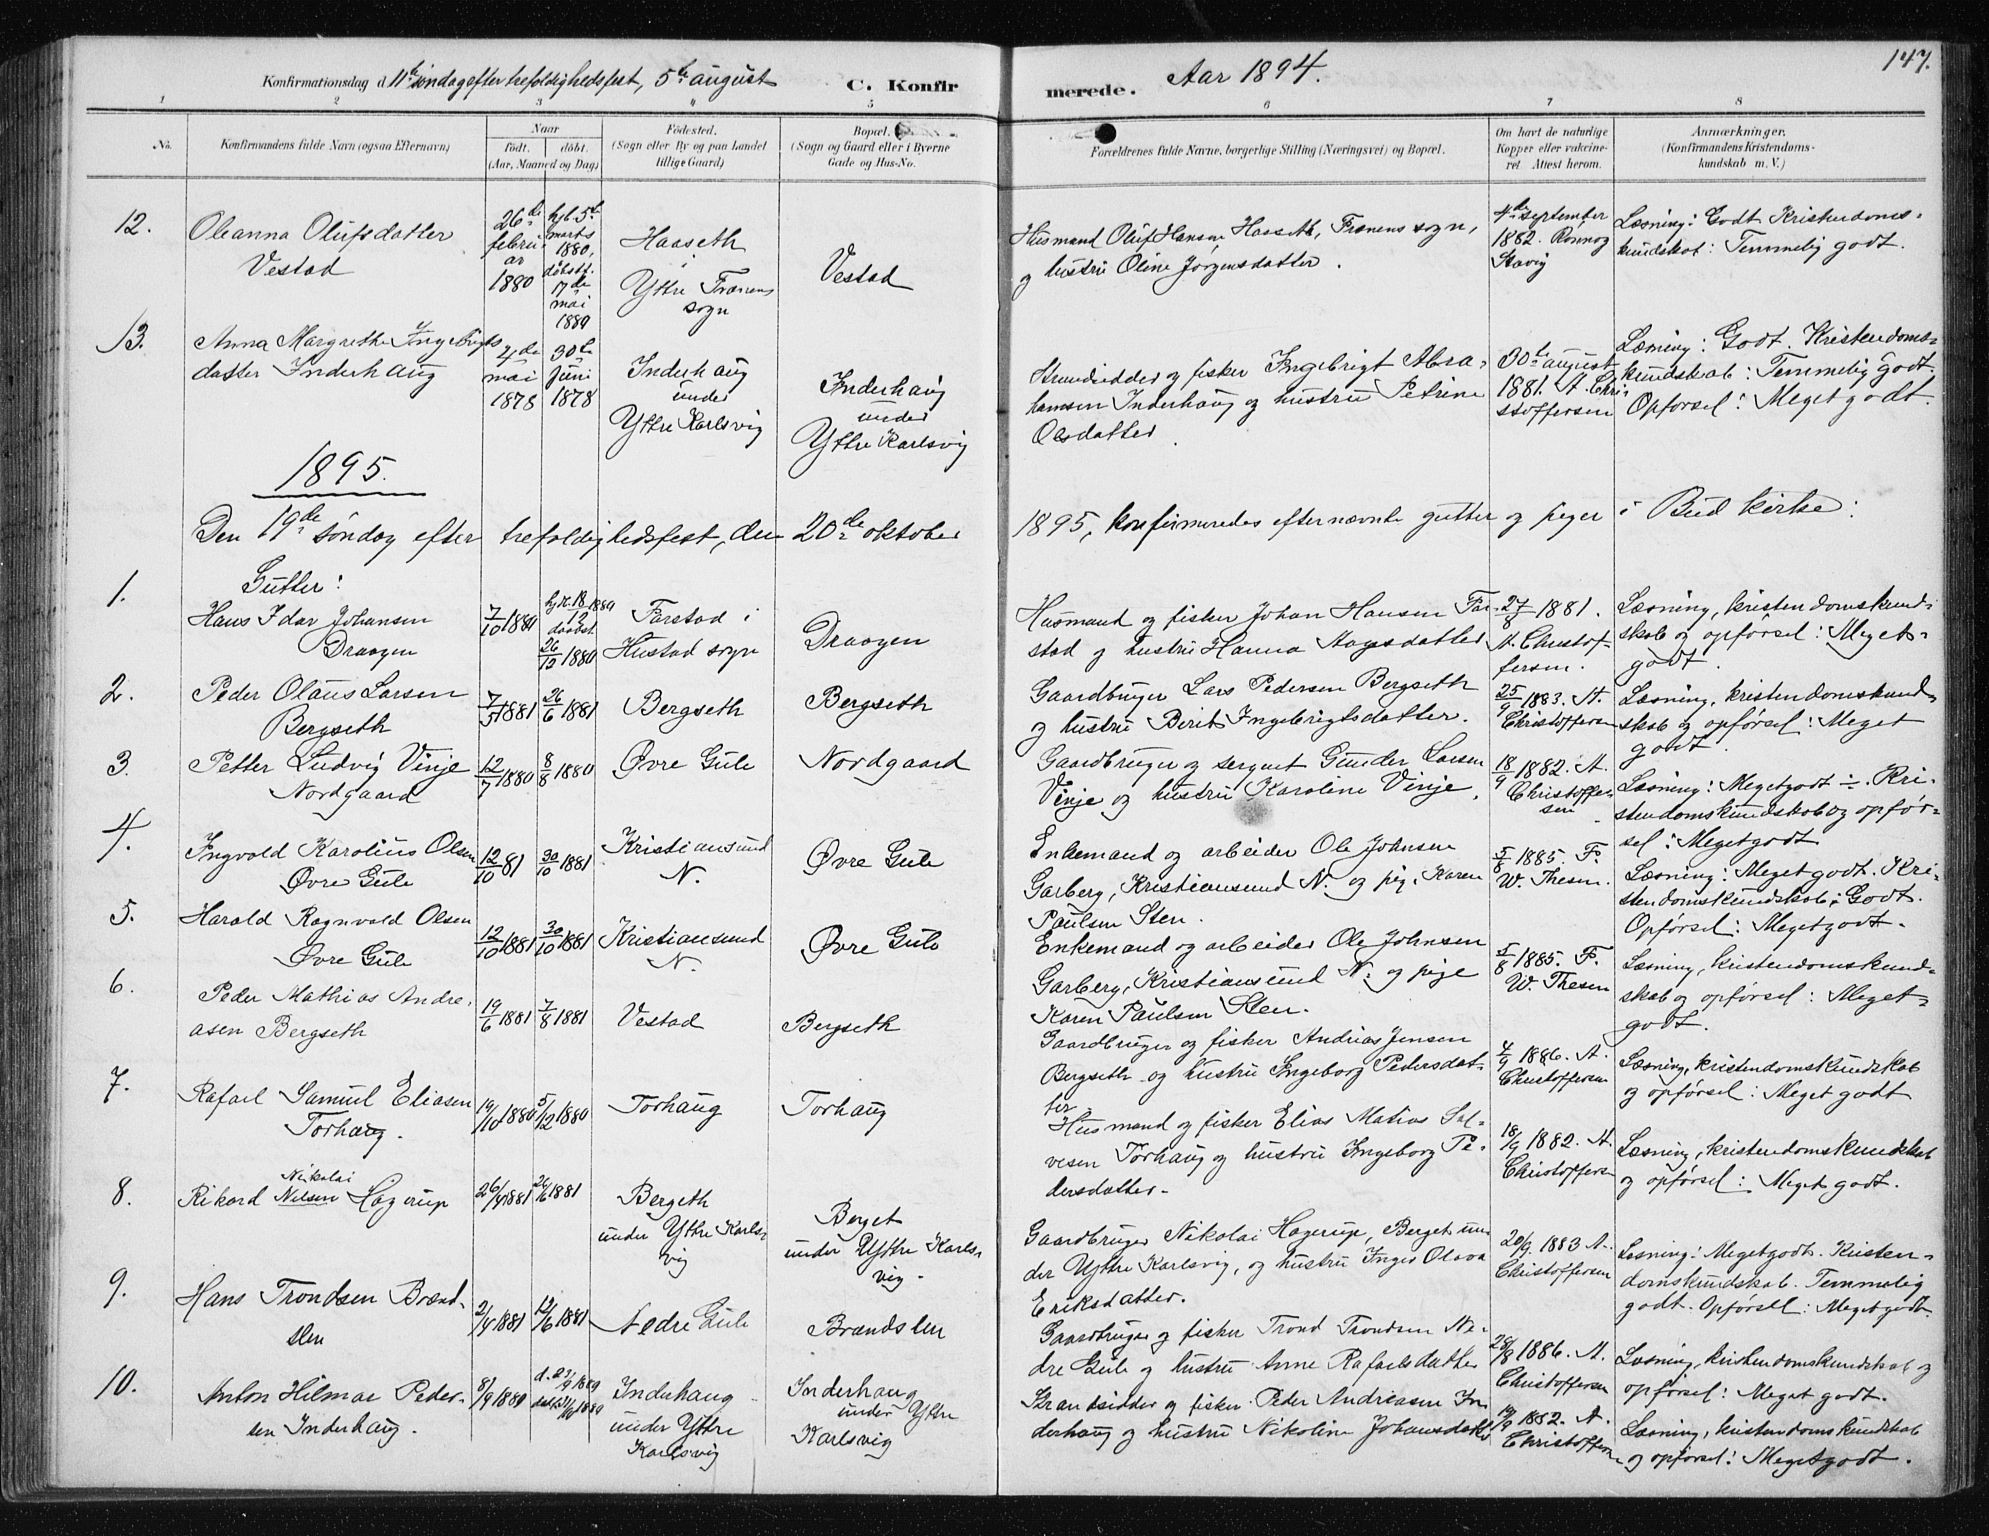 147.
Konfirmationsdag d. 11te søndag efter trefoldighedsfest, 5te august
C. Konfirmerede. Aar 1894.
1 2 3 4 5 6 7 8
No. Konfirmandens fulde Navn (ogsaa Efternavn) Naar født. døbt. (Aar, Maaned og Dag) Födested. (Sogn eller By og paa Landet tillige Gaard) Bopæl. (Sogn og Gaard eller i Byerne Gade og Hus-No. Forældrenes fulde Navne, borgerlige Stilling (Næringsvei) og Bopæl. Om havt de naturlige Kopper eller vakcineret Attest herom. Anmærkninger. (Konfirmandens Kristendomskundskab m. V.)
12. Oleanna Olufsdatter Vestad
26de februar 1880
hjd. 5te marts 1880, døbstf. 17de mai 1880
Haaseth Yttre Frænens sogn
Vestad
Husmand Oluf Hansen Haaseth, Frænens sogn,
og hustru Oline Jørgensdatter.
4de september 1882. Rønnog Stavig
Læsning: Godt Kristendoms-
kundskab: Temmelig godt.
13. Anna Margrethe Ingebrigts
datter Inderhaug
4de mai 1878
30te juni 1878
Inderhaug under Yttre Karlsvig
Inderhaug under Yttre Karlsvig
Strandsidder og fisker Ingebrigt Abra-
hamsen Inderhaug og hustru Petrine
Olsdatter
30te august 1881. A. Christoffersen
Læsning: Godt. Kristendoms-
kundskab: Temmelig godt.
Opførsel: Meget godt.
1895.
Den 19de søndag efter trefoldighedsfest, den 20de oktober 1895, konfirmeredes efternævnte gutter og piger i Bud kirke:
Gutter:
1. Hans Idar Johansen
Draagen
7/10 1880
hjd. 18/12 1880 daabst. 26/12 1880
Farstad i Hustad sogn
Draagen
Husmand og fisker Johan Hansen Far-
stad og hustru Hanna Aagesdatter
27/8 1881. A. Christoffersen.
Læsning, kristendomskund-
skab og opførsel: Meget
godt.
2. Peder Olaus Larsen
Bergseth
7/5 1881
26/6 1881
Bergseth
Bergseth
Gaardbruger Lars Pedersen Bergseth
og hustru Berit Ingebrigtsdatter.
25/9 1883. A. Christoffersen
Læsning, kristendomskund-
skab og opførsel: Meget
godt.
3. Petter Ludvig Vinje
Nordgaard
12/7 1880
8/8 1880
Øvre Gule
Nordgaard
Gaardbruger og sergent Gunder Larsen
Vinje og hustru Karoline Vinje.
18/9 1882. A. Christoffersen
Læsning: Megetgodt ÷. Kri-
stendomskundskab og opfør-
sel: Megetgodt
4. Ingvald Karolius Olsen
Øvre Gule
12/10 81
30/10 1881
Kristiansund N.
Øvre Gule
Enkemand og arbeider Ole Johnsen
Garberg, Kristiansund N. og pige Karen
Paulsen Sten.
5/8 1885. F. W. Thesen.
Læsning: Megetgodt. Kri-
stendomskundskab: Godt.
Opførsel: Megetgodt.
5. Harald Ragnvald Olsen
Øvre Gule
12/10 1881
30/10 1881
Kristiansund N.
Øvre Gule
Enkemand og arbeider Ole Johnsen
Garberg, Kristiansund N. og pige
Karen Paulsen Sten.
5/8 1885. F. W. Thesen
Læsning, kristendomskund-
skab og opførsel: Meget
godt.
6. Peder Mathias Andre-
asen Bergseth
19/6 1881
7/8 1881
Vestad
Bergseth
Gaardbruger og fisker Andrias Jensen
Bergseth og hustru Ingeborg Pedersdat-
ter
4/9 1886. A. Christoffersen
Læsning, kristendomskundskab
og opførsel: Meget godt
7. Rafael Samuel Eliasen
Torhaug.
19/10 1880
5/12 1880
Torhaug
Torhaug
Husmand og fisker Elias Matias Sal-
vesen Torhaug og hustru Ingeborg Pe-
dersdatter.
18/9 1882. A. Christoffersen
Læsning, kristendomskundskab
og opførsel: Meget godt.
8. Rikard Nikolai Nilsen Hagerup
26/4 1881
26/6 1881
Bergeth under Yttre Karlsvig
Berget under Yttre Karlsvig.
Gaardbruger Nikolai Hagerup, Berget un-
der Yttre Karlsvig, og hustru Inger Olava
Eriksdatter.
20/9. 1883 A. Christoffersen
Læsning: Megetgodt. Kristen-
domskundskab. Temmelig
godt. Opførsel: Megetgodt
9. Hans Trondsen Brænd-
slen
2/4 1881
12/6 1881
Nedre Gule
Brændslen
Gaardbruger og fisker Trond Trondsen Ne-
dre Gule og hustru Anne Rafaelsdatter
28/8 1886. A. Christoffersen
Læsning, kristendomskundskab og
opførsel: Meget godt.
10. Anton Hilmar Peder-
sen Inderhaug.
8/9 1880
Inderhaug under Yttre Karlsvig
Inderhaug under Yttre Karlsvig
Strandsidder og fisker Peder Andreasen In-
derhaug og hustru Nikoline Johansdatter
1882. A. Christoffersen
Læsning, kristendomskundskab
og opførsel: Megetgodt.